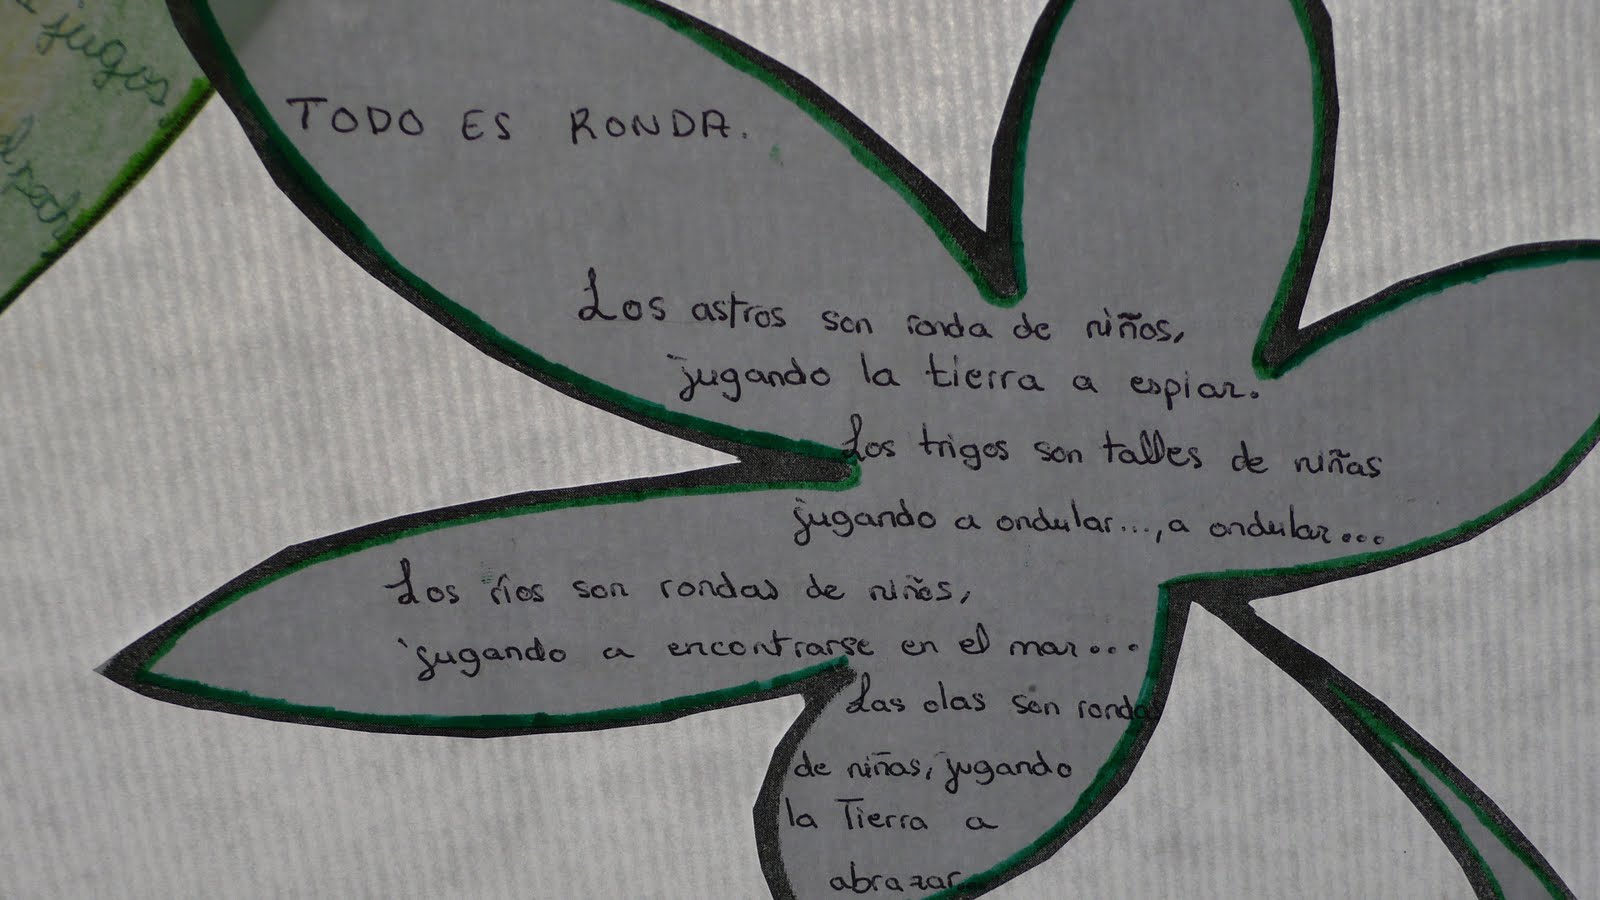 jugos
TODO ES RONDA.
Los astros son ronda de niños,
jugando la tierra a espiar.
Los trigos son talles de niñas
jugando a ondular..., a ondular...
Los ríos son rondas de niños,
jugando a encontrarse en el mar...
Las olas son ronda
de niñas, jugando
la Tierra a
abrazar.